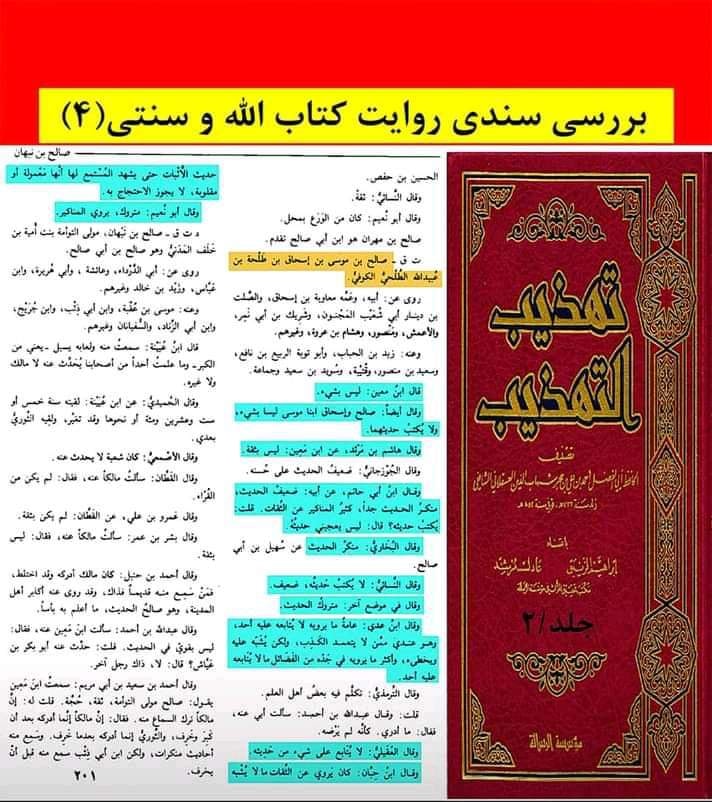 بررسی سندی روایت کتاب الله و سنتی(۴)
صالح بن نبهان
الحسين بن حفص.
وقال النَّسائيُّ: ثقة.
وقال أبو نُعيم: كان من الوَرَع بمحل.
صالح بن مهران هو ابن أبي صالح تقدم.
ت ق ـ صالح بن موسى بن إسحاق بن طَلْحة بن
عُبيدالله الطَّلْحيُّ الكوفيُّ.
روى عن: أبيه، وعَمِّه معاوية بن إسحاق، والصَّلت
بن دينار أبي شُعَيْب المَجْنون، وشَريك بن أبي نَمِر،
والأعمش، ومَنْصور، وهشام بن عروة، وغيرهم.
وعنه: زيد بن الحباب، وأبو توبة الربيع بن نافع،
وسعيد بن منصور، وقُتَيبة، وسُويد بن سعيد وجماعة.
قال ابنُ معين: ليس بشيء.
وقال أيضاً: صالح وإسحاق ابنا موسى ليسا بشيء،
ولا يُكتبُ حديثهما.
وقال هاشم بن مَرْثَد، عن ابن مَعِين: ليس بثقة.
وقال الجُوزجانيُّ: ضعيفُ الحديث على حُسنه.
وقال ابنُ أبي حاتم، عن أبيه: ضعيف الحديث،
منكرُ الحديث جداً، كثيرُ المناكير عن الثِّقات. قلت:
يُكتبُ حديثه؟ قال: ليس يعجبني حديثُه.
وقال البُخاريُّ: منكرُ الحديث عن سُهيل بن أبي
صالح.
وقال النَّسائيُّ: لا يُكتبُ حديثُه، ضعيف.
وقال في موضع آخر: متروكُ الحديث.
وقال ابنُ عدي: عامةُ ما يرويه لا يتابعه عليه أحد،
وهو عندي ممَّن لا يتعمد الكَذِب، ولكن يُشَبَّه عليه
ويخطىء، وأكثر ما يرويه في جَدِّه من الفَضائل ما لا يُتابعه
عليه أحد.
وقال التِّرمذيُّ: تكلَّم فيه بعضُ أهل العلم.
قلت: وقال عبدالله بن أحمد: سألت أبي عنه،
فقال: ما أدري. كأنَّه لم يَرْضَه.
وقال العُقيليُّ: لا يُتابع على شيء من حَدِيثه
وقال ابنُ حِبان: كان يَروي عن الثِّقات ما لا يُشْبه
حديثَ الأَثْبات حتى يشهد المُسْتمع لها أنَّها مَعْمولة أو
مقلوبة، لا يجوز الاحتجاج به.
وقال أبو نُعيم: متروك، يروي المناكير.
د ت ق ـ صالح بن نَبْهان، مولى التوأمة بنت أمية بن
خَلَف المَدَنيُّ وهو صالح بن أبي صالح.
روى عن: أبي الدَّرْداء، وعائشة، وأبي هُريرة، وابن
عَبَّاس، وزَيْد بن خالد وغيرهم.
وعنه: موسى بن عُقْبة، وابن أبي ذِئْب، وابن جُرَيْج،
وابن أبي الزِّناد، والسُّفيانان وغيرهم.
قال ابنُ عُيَيْنة: سمعتُ منه ولعابه يسيل ـ يعني من
الكبر ـ وما علمتُ أحداً من أصحابنا يُحَدِّث عنه لا مالك
ولا غيره.
وقال الحُميديُّ: عن ابن عُيَيْنة: لقيته سنة خمس أو
ست وعشرين ومئة أو نحوها وقد تغيَّر، ولقيه الثَّوريُّ
بعدي.
وقال الأصْمَعيُّ: كان شعبة لا يحدث عنه.
وقال القَطَّان: سألتُ مالكاً عنه، فقال: لم يكن من
القُرَّاء.
وقال عَمرو بن علي، عن القَطَّان: لم يكن بثقة.
وقال بشر بن عمر: سألتُ مالكاً عنه، فقال: ليس
بثقة.
وقال أحمد بن حنبل: كان مالك أدركه وقد اختلط،
فمَنْ سَمِع منه قديماً فذاك، وقد روى عنه أكابر أهل
المدينة، وهو صالحُ الحديث، ما أعلم به بأساً.
وقال عبدالله بن أحمد: سألت ابنَ مَعِين عنه، فقال:
ليس بقوي في الحديث. قلت: حدَّث عنه أبو بكر بن
عَيَّاش؟ قال: لا، ذاك رجل آخر.
وقال أحمد بن سعيد بن أبي مريم: سمعتُ ابنَ مَعِين
يقول: صالح مولى التوأمة، ثقة، حُجَّة. قلت له: إنَّ
مالكاً ترك السماع منه. فقال: إنَّ مالكاً إنَّما أدركه بعد أن
كَبِر وخَرِف، والثَّوريُّ إنما أدركه بعدما خَرِف. وسَمِع منه
أحاديث منكرات، ولكن ابن أبي ذِئْب سمع منه قبلَ أنْ
يخرف.
٢٠١
تهذيب
التهذيب
تصنيف
باعتناء
إبراهيم الزيبق
عادل مرشد
جلد/٢
مؤسسة الرسالة